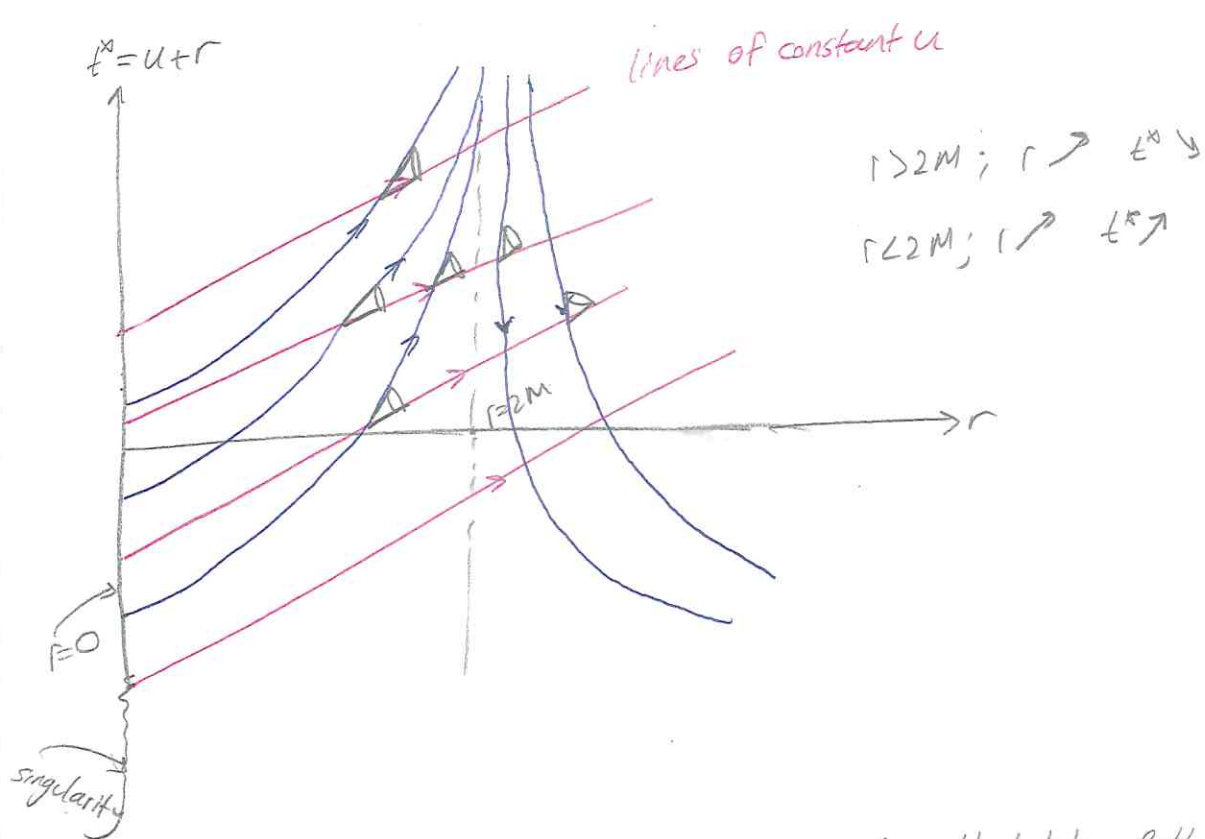 t* = u+r
lines of constant u
r>2M; r ↗ t* ↘
r<2M; r ↗ t* ↗
r=2M
r
r=0
singularity